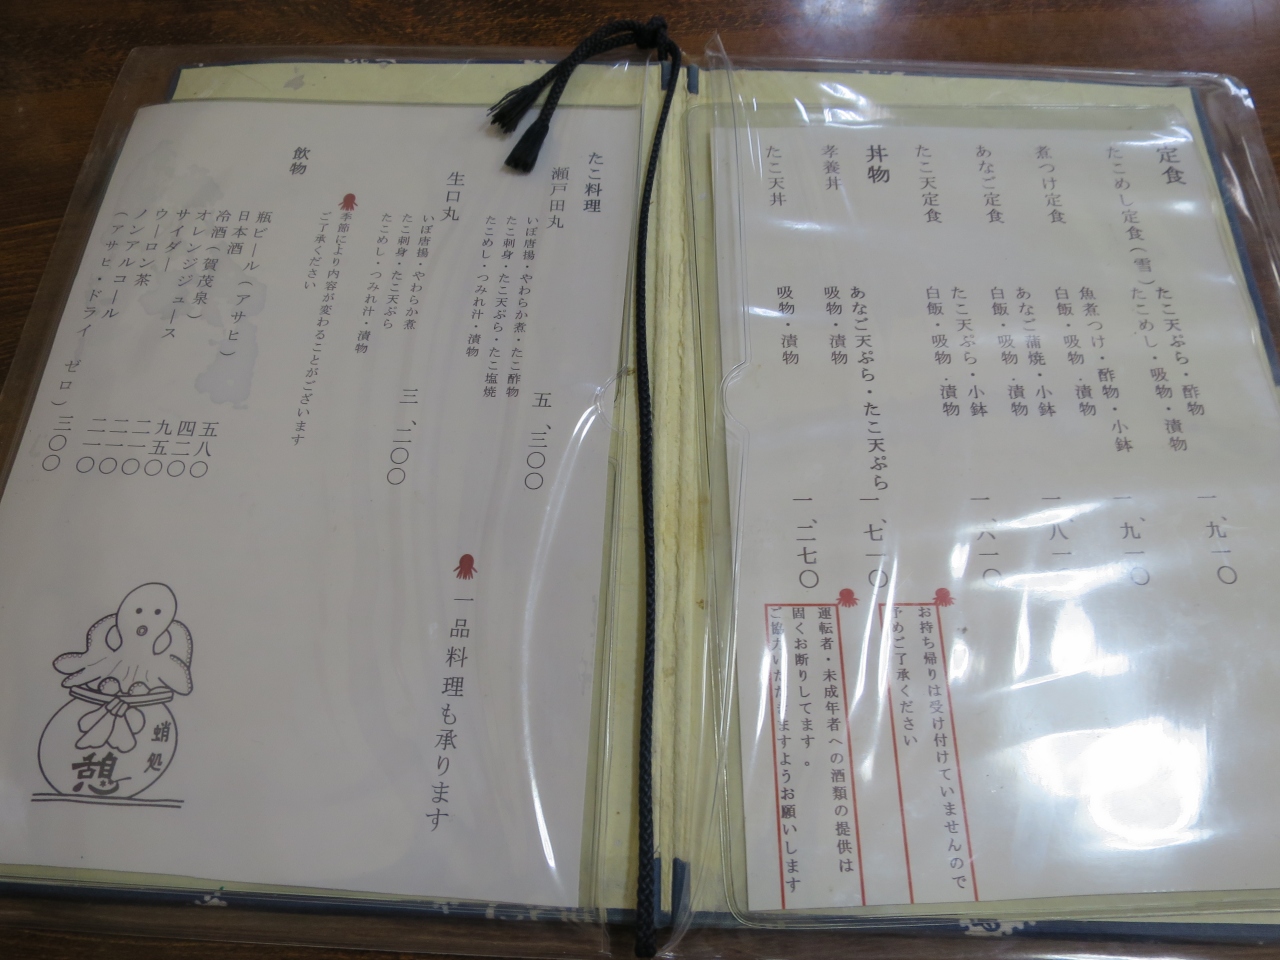 定食
たこめし定食（雪）
たこ天ぷら・酢物
たこめし・吸物・漬物
一、九一〇
煮つけ定食
魚煮つけ・酢物・小鉢
白飯・吸物・漬物
一、九一〇
あなご定食
あなご蒲焼・小鉢
白飯・吸物・漬物
一、八一〇
たこ天定食
たこ天ぷら・小鉢
白飯・吸物・漬物
一、六一〇
丼物
孝養丼
あなご天ぷら・たこ天ぷら
吸物・漬物
一、七一〇
たこ天丼
吸物・漬物
一、二七〇
お持ち帰りは受け付けていませんので
予めご了承ください
運転者・未成年者への酒類の提供は
固くお断りしてます。
ご協力いただきますようお願いします
たこ料理
瀬戸田丸
いぼ唐揚・やわらか煮・たこ酢物
たこ刺身・たこ天ぷら・たこ塩焼
たこめし・つみれ汁・漬物
五、三〇〇
生口丸
いぼ唐揚・やわらか煮
たこ刺身・たこ天ぷら
たこめし・つみれ汁・漬物
三、二〇〇
季節により内容が変わることがございます
ご了承ください
一品料理も承ります
飲物
瓶ビール（アサヒ）
五八〇
日本酒
四二〇
冷酒（賀茂泉）
九五〇
オレンジジュース
二一〇
サイダー
二一〇
ウーロン茶
二一〇
ノンアルコール
（アサヒ・ドライ ゼロ）
三〇〇
蛸処
憩